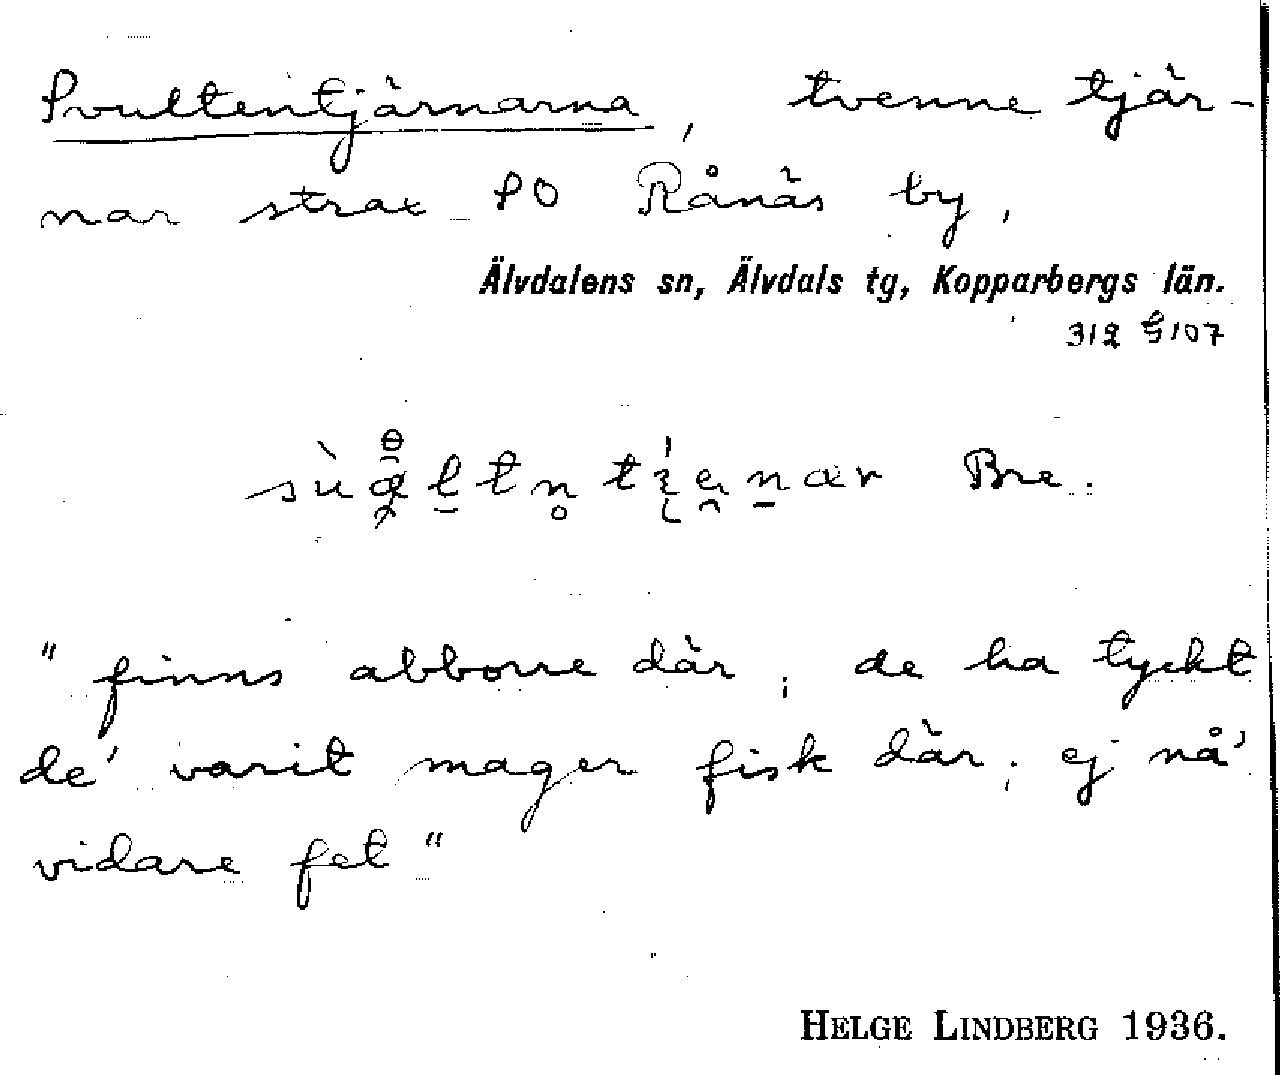 Svultentjärnarna, tvenne tjär-
nar strax SO Rånäs by,
Älvdalens sn, Älvdals tg, Kopparbergs län.
Bre.
"finns abborre där, de ha tyckt
de' varit mager fisk där, ej nå'
vidare fet"
HELGE LINDBERG 1936.